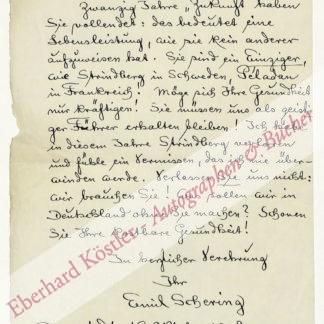 Zwanzig Jahre „Zukunft" haben
Sie vollendet: das bedeutet eine
Lebensleistung, wie sie kein anderer
aufzuweisen hat. Sie sind ein Einziger,
wie Strindberg in Schweden, Péladan
in Frankreich! Möge sich Ihre Gesundheit
nur kräftigen! Sie müssen uns als geisti-
ger Führer erhalten bleiben! Ich habe
in diesem Jahre Strindberg verloren
und fühle ein Vermissen, das ich nie über-
winden werde. Verlassen Sie uns nicht:
wir brauchen Sie! Was sollen wir in
Deutschland ohne Sie machen? Schonen
Sie Ihre kostbare Gesundheit!
In herzlicher Verehrung
Ihr
Emil Schering
Eberhard Köstler Autographen & Bücher